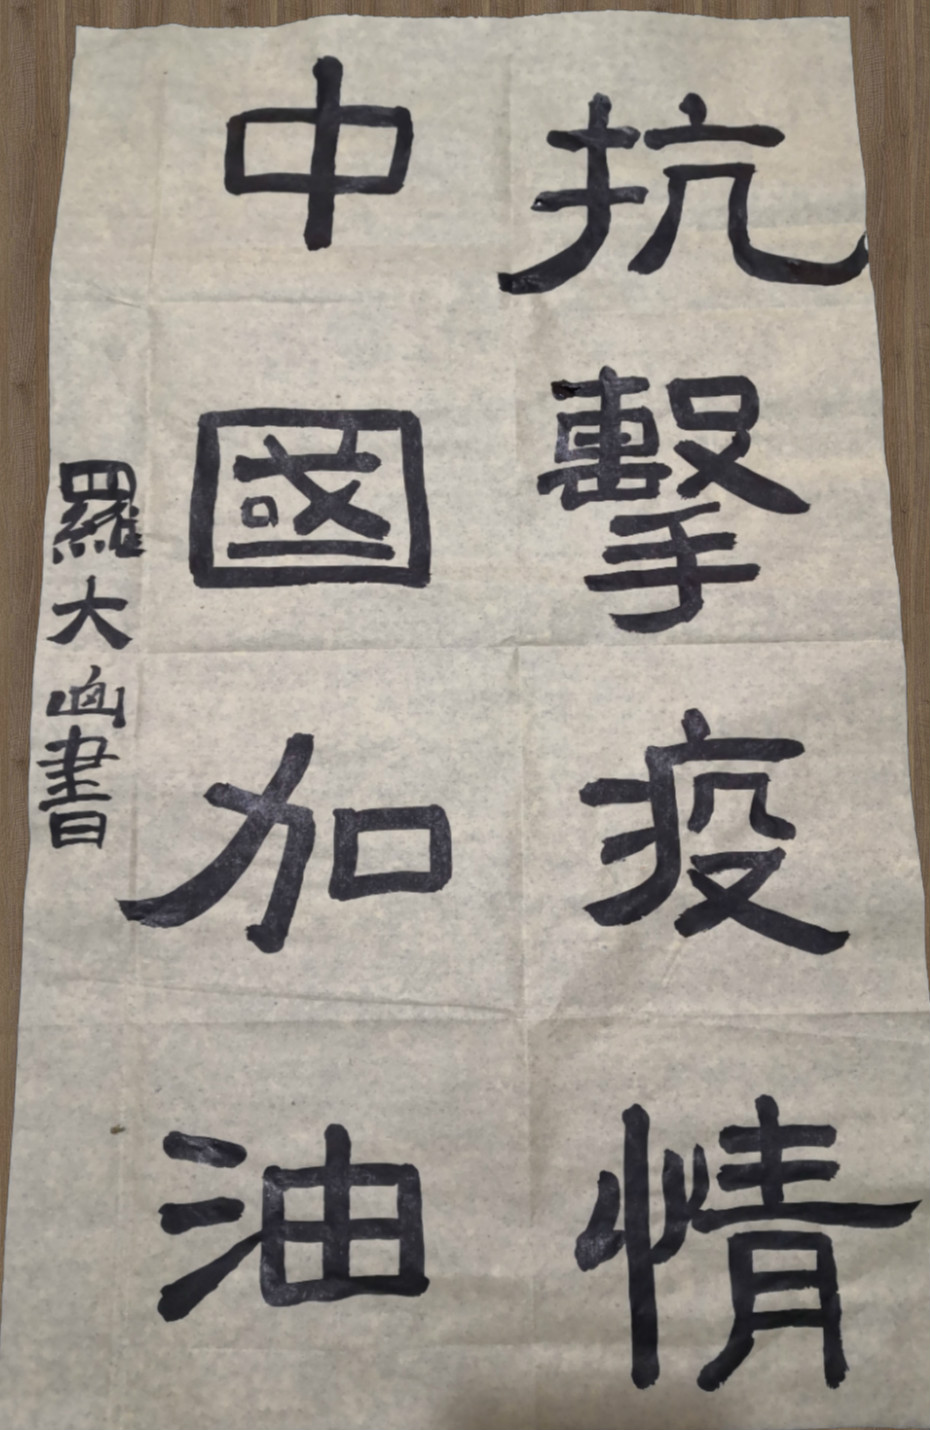 抗擊疫情
中國加油
羅大山書